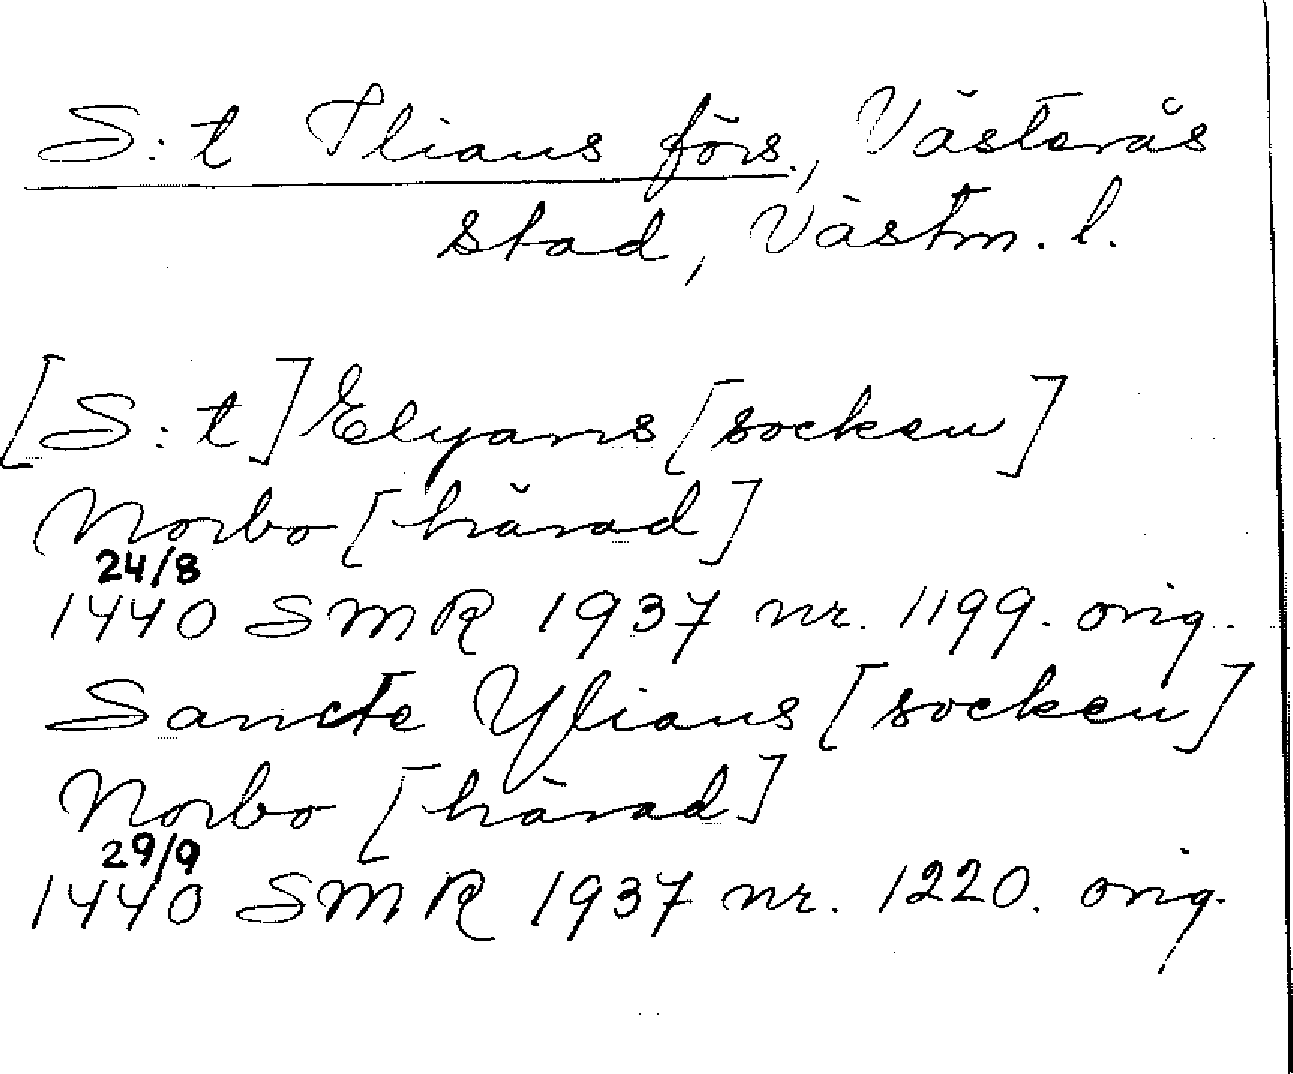 S:t Ilians förs., Västerås
stad, Västm. l.
[S:t] Elyans [socken]
Norbo [härad]
24/8
1440 SMR 1937 nr. 1199. orig.
Sancte Ylians [socken]
Norbo [härad]
29/9
1440 SMR 1937 nr. 1220. orig.